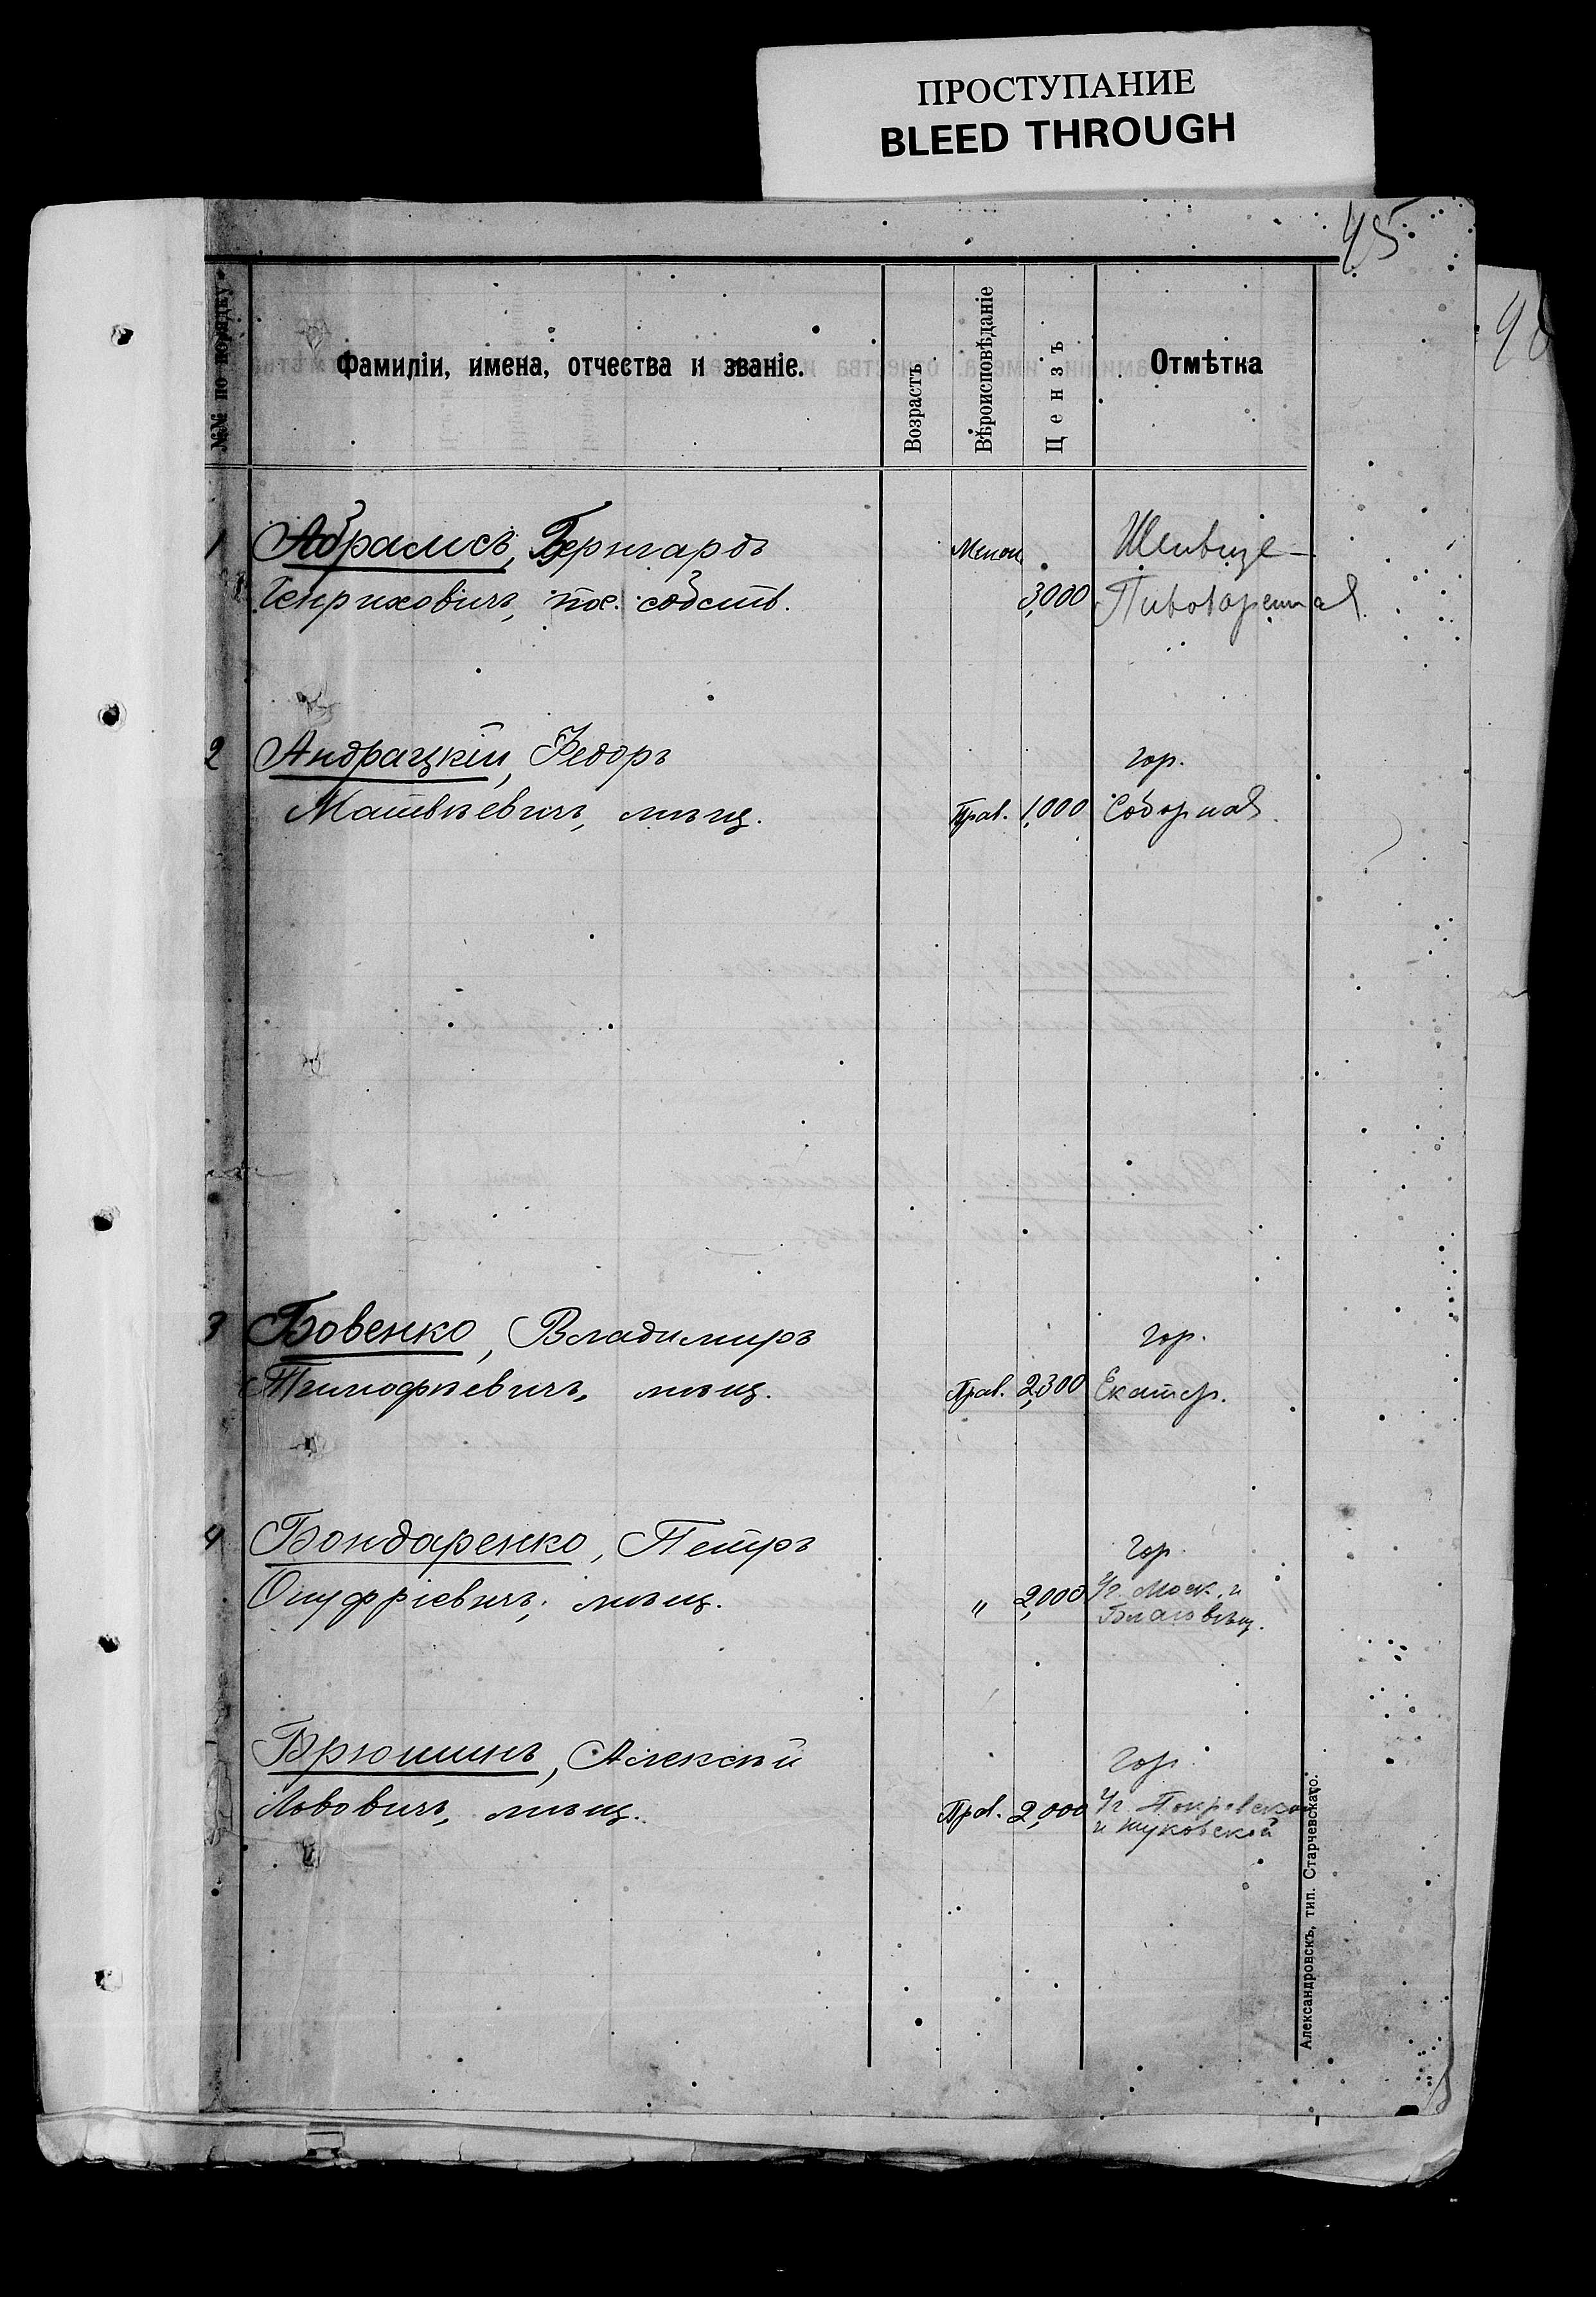 ПРОСТУПАНИЕ
BLEED THROUGH
45
№№ по порядку
Фамиліи, имена, отчества и званіе.
Возрастъ
Вѣроисповѣданіе
Цензъ
Отмѣтка
1 Абрамсъ, Бернгардъ Менон Шенвизе-
Генриховичъ, пос. собств. 3,000 Пивоваренная
2 Андрацкій, Федоръ гор.
Матвѣевичъ, мѣщ. Прав. 1,000 Соборная
3 Бовенко, Владимиръ гор.
Тимофѣевичъ, мѣщ. Прав. 2,300 Екатер.
4 Бондаренко, Петръ гор.
Онуфріевичъ, мѣщ. „ 2,000 у/г Моск. и
Благовѣщ.
Брюшинъ, Алексѣй гор.
Львовичъ, мѣщ. Прав. 2,000 у/г Покровской
и Жуковской
Александровскъ, тип. Старчевскаго.